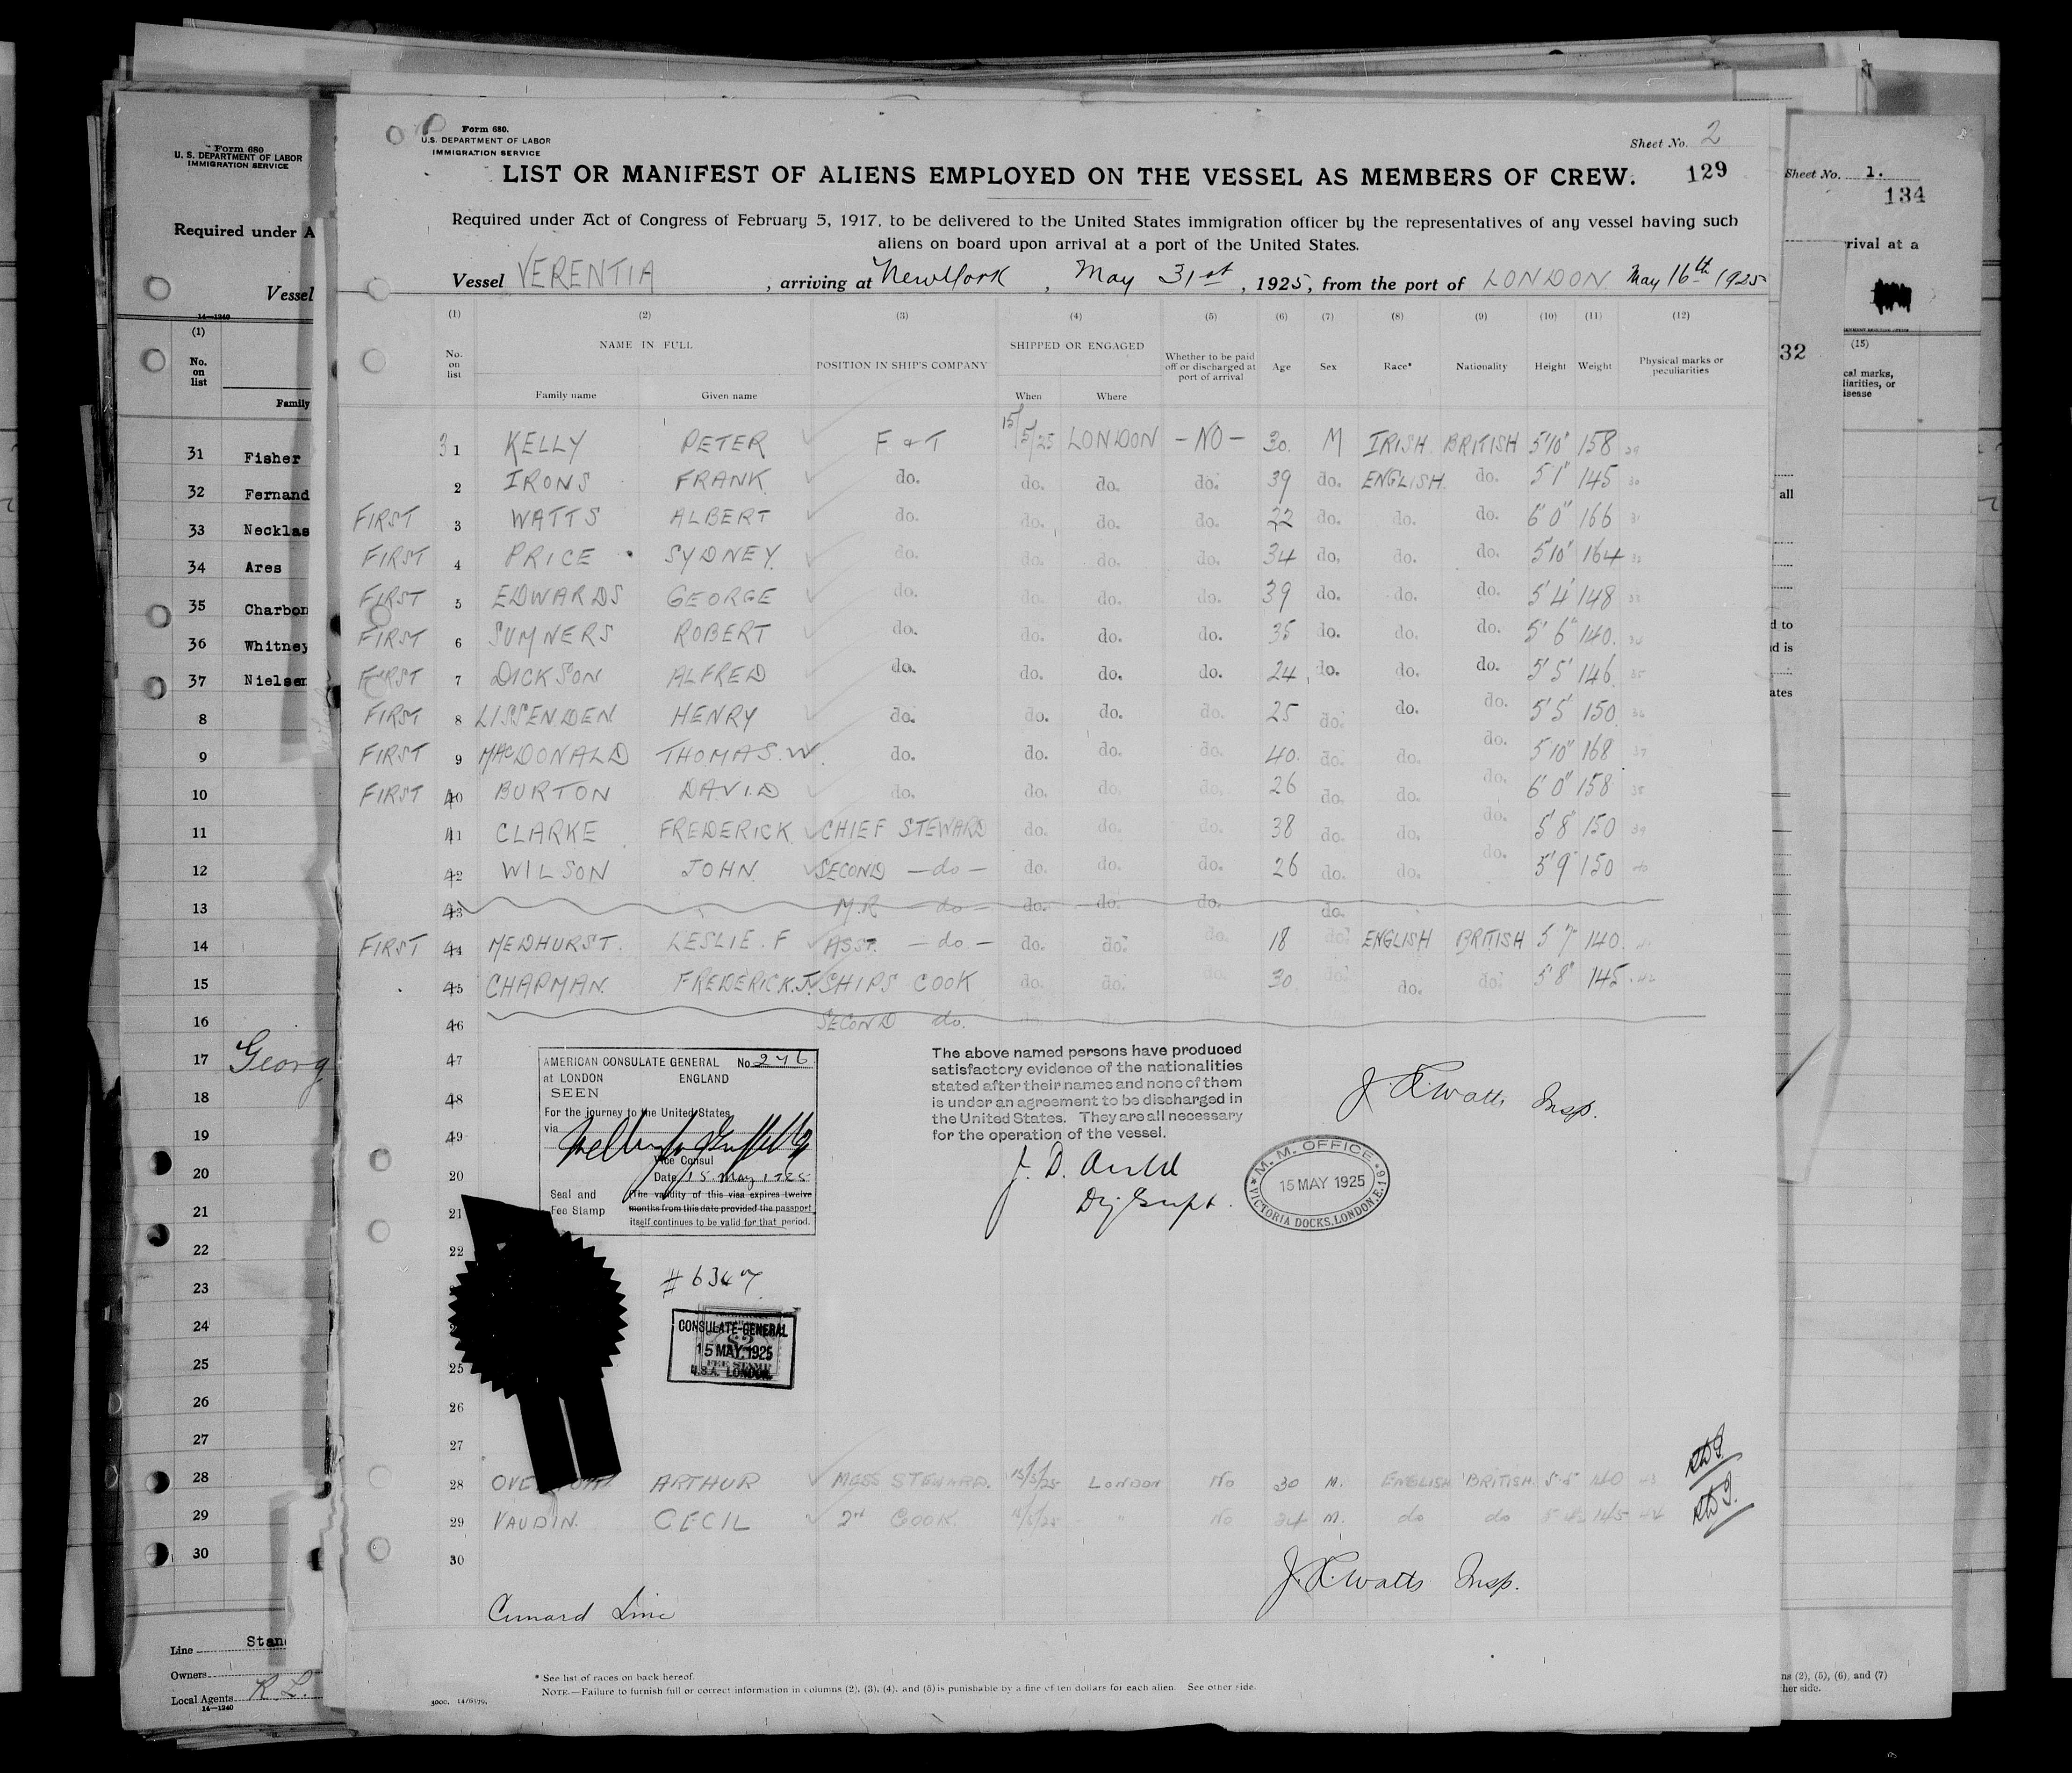 Form 680.
U.S. DEPARTMENT OF LABOR
IMMIGRATION SERVICE
Sheet No. 2
LIST OR MANIFEST OF ALIENS EMPLOYED ON THE VESSEL AS MEMBERS OF CREW.
129
Required under Act of Congress of February 5, 1917, to be delivered to the United States immigration officer by the representatives of any vessel having such
aliens on board upon arrival at a port of the United States.
Vessel VERENTIA, arriving at New York, May 31st, 1925, from the port of LONDON May 16th 1925
(1) (2) (3) (4) (5) (6) (7) (8) (9) (10) (11) (12)
No. on list NAME IN FULL Family name Given name POSITION IN SHIP'S COMPANY SHIPPED OR ENGAGED When Where Whether to be paid off or discharged at port of arrival Age Sex Race* Nationality Height Weight Physical marks or peculiarities
31 KELLY PETER F & T 15/5/25 LONDON - NO - 30. M IRISH. BRITISH 5'10" 158 29
2 IRONS FRANK. do. do. do. do. 39 do. ENGLISH. do. 5'1" 145 30
FIRST 3 WATTS ALBERT do. do. do. do. 22 do. do. do. 6'0" 166 31
FIRST 4 PRICE SYDNEY. do. do. do. do. 34 do. do. do. 5'10" 164 32
FIRST 5 EDWARDS GEORGE do. do. do. do. 39 do. do. do. 5'4" 148 33
FIRST 6 SUMNERS ROBERT do. do. do. do. 35 do. do. do. 5'6" 140.
FIRST 7 DICKSON ALFRED do. do. do. do. 24 do. do. do. 5'5" 146 35
FIRST 8 LISSENDEN HENRY do. do. do. do. 25 do. do. do. 5'5" 150 36
FIRST 9 MACDONALD THOMAS.W. do. do. do. do. 40. do. do. do. 5'10" 168 37
FIRST 40 BURTON DAVID do. do. do. do. 26 do. do. do. 6'0" 158 38
41 CLARKE FREDERICK CHIEF STEWARD do. do. do. 38 do. do. do. 5'8" 150 39
42 WILSON JOHN. SECOND - do - do. do. do. 26 do. do. do. 5'9" 150 40
43 M.R - do - do. do. do. do.
FIRST 44 MEDHURST. LESLIE.F ASST. - do - do. do. do. 18 do. ENGLISH BRITISH 5'7" 140.
45 CHAPMAN. FREDERICK.J. SHIPS COOK do. do. do. 30 do. do. do. 5'8" 145
46 SECOND do.
47
48
49
20
21
22
AMERICAN CONSULATE GENERAL No. 246
at LONDON ENGLAND
SEEN
For the journey to the United States
via
Vice Consul
Date 15 May 1925
Seal and Fee Stamp
(The validity of this visa expires twelve
months from this date provided the passport
itself continues to be valid for that period.
The above named persons have produced
satisfactory evidence of the nationalities
stated after their names and none of them
is under an agreement to be discharged in
the United States. They are all necessary
for the operation of the vessel.
J. D. Auld
J. K. Watts Insp.
M. M. OFFICE
15 MAY 1925
VICTORIA DOCKS, LONDON, E.16
CONSULATE-GENERAL
15 MAY. 1925
FEE STAMP
U.S.A. LONDON.
25
26
27
28 ARTHUR MESS STEWARD. 15/5/25 London No 30 M. ENGLISH BRITISH. 5-5 140 43
29 VAUDIN. CECIL 2nd COOK. " No 24 M. do do 145 44
30
J. K. Watts Insp.
Cunard Line
* See list of races on back hereof.
NOTE.—Failure to furnish full or correct information in columns (2), (3), (4), and (5) is punishable by a fine of ten dollars for each alien. See other side.
Form 680
U. S. DEPARTMENT OF LABOR
IMMIGRATION SERVICE
Required under A
Vessel
14—1240
(1)
No. on list
Family
31 Fisher
32 Fernand
33 Necklas
34 Ares
35 Charbon
36 Whitney
37 Nielsen
8
9
10
11
12
13
14
15
16
17 Georg
18
19
20
21
22
23
24
25
26
27
28
29
30
Line Stan
Owners
Local Agents R. L.
14—1240
Sheet No. 1.
134
rival at a
32
(15)
cal marks,
liarities, or
isease
all
d to
d is
ates
ns (2), (5), (6), and (7)
her side.